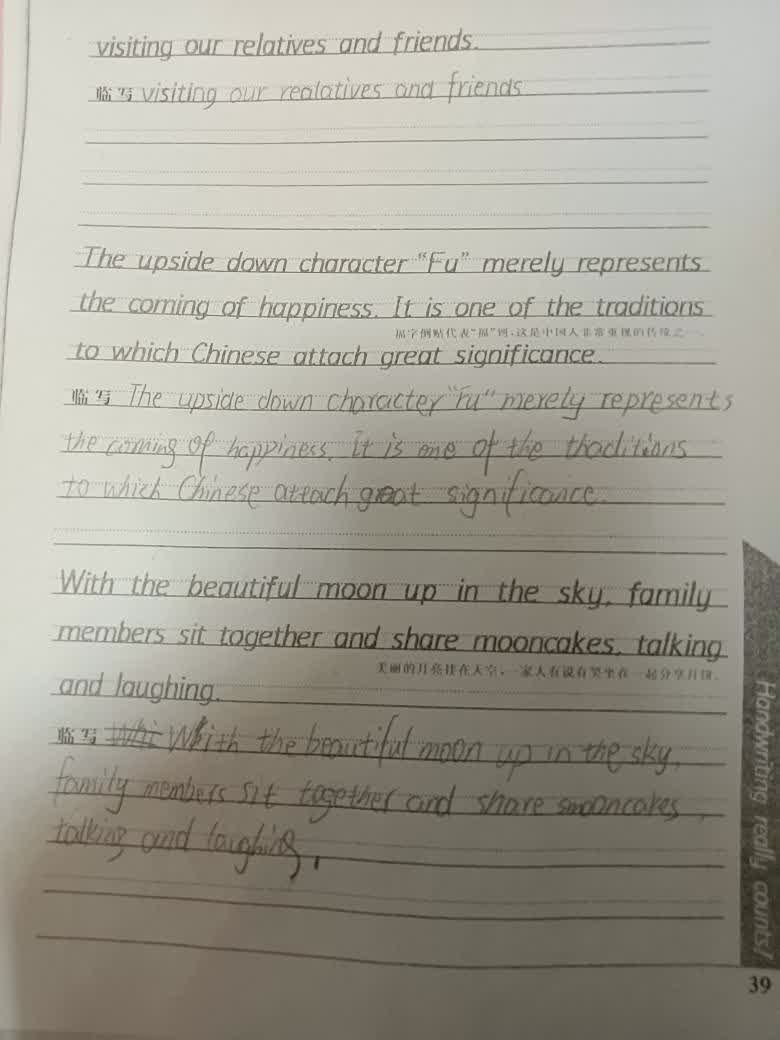 visiting our relatives and friends.
临写 visiting our realatives and friends
The upside down character “Fu” merely represents
the coming of happiness. It is one of the traditions
福字倒贴代表“福”到，这是中国人非常重视的传统之一。
to which Chinese attach great significance.
临写 The upside down character "Fu" merely represents
the coming of happiness. It is one of the thaditions
to which Chinese attach great significance.
With the beautiful moon up in the sky, family
members sit together and share mooncakes, talking
美丽的月亮挂在天空，一家人有说有笑坐在一起分享月饼。
and laughing.
临写 With the beautiful moon up in the sky,
family members sit together and share mooncakes,
talking and laughing.
Handwriting really counts!
39